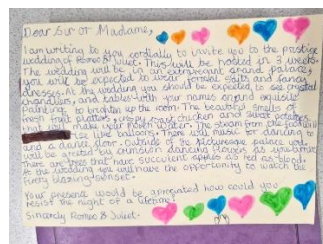 Dear Sir or Madame,
I am writing to you cordially to invite you to the prestige
wedding of Romeo & Juliet. This will be hosted in 3 weeks.
The wedding will be in an extravagant grand palace,
you will be expected to wear formal suits and fancy
dresses. At the wedding you should be expected to see crystal
chandliers, and tables with your names around exquisite
paintings to brighten up the room. The beautiful smells of
fresh fruit platters, crispy roast chicken and sweet potatoes
that make your mouth water. The steam from the
use like baloons. There will music for dancing to
and a dance floor. Outside of the picturesque palace you
will be greeted by crimson dancing flowers as you enter
There are trees that have succulent apples as red as blood.
At the wedding you will have the opportunity to watch the
firey blazing sunset.
Your presence would be apreciated how could you
resist the night of a lifetime!
Sincerly Romeo & Juliet.